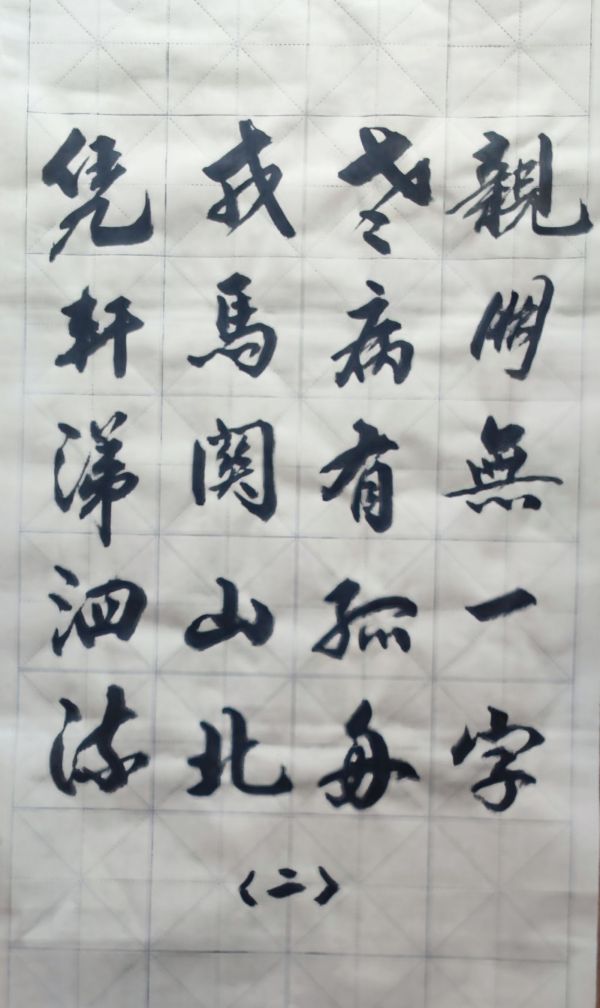 親朋無一字
老病有孤舟
戎馬關山北
凭軒涕泗流
〈二〉